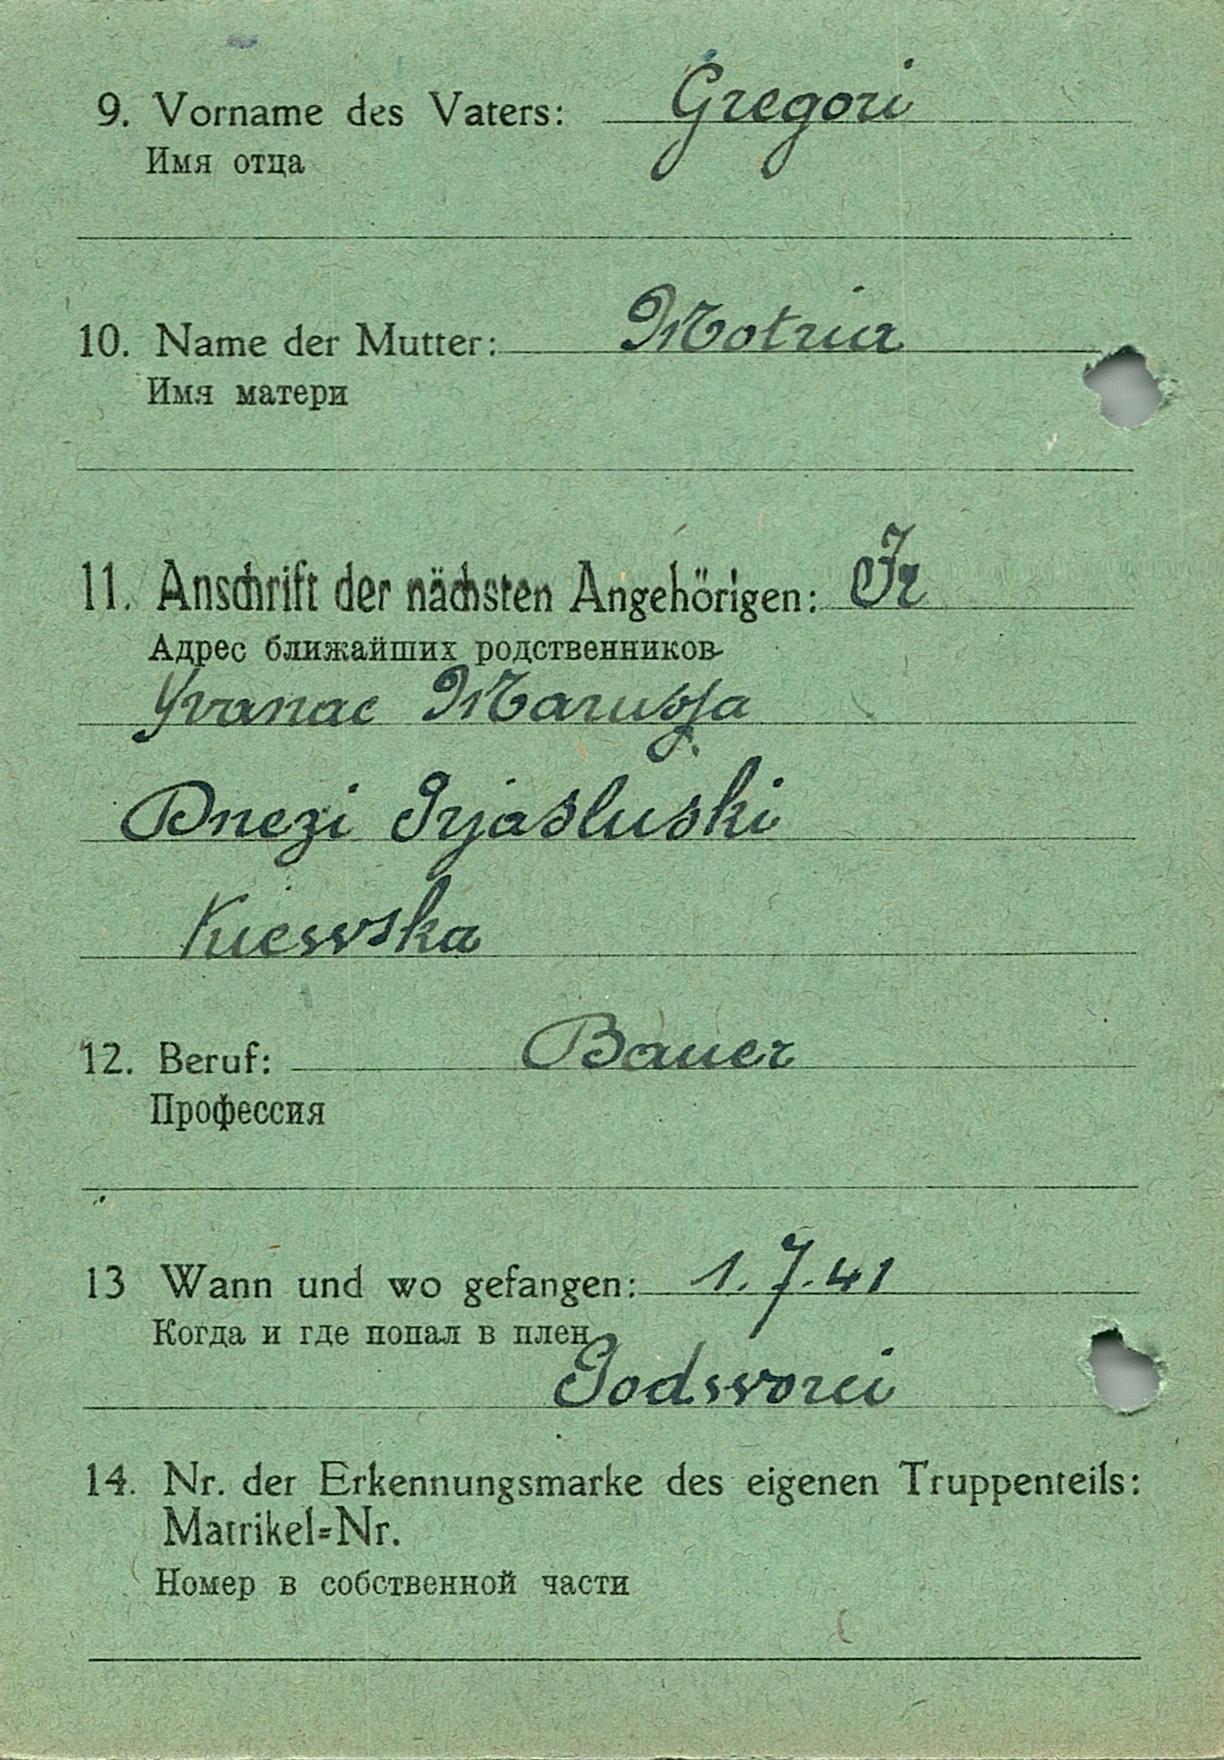 9. Vorname des Vaters: Gregori
Имя отца
10. Name der Mutter: Motria
Имя матери
11. Anschrift der nächsten Angehörigen: Fr
Адрес ближайших родственников
Yvanac Marusja
Dnezi Irjasluski
Kiewska
12. Beruf: Bauer
Профессия
13 Wann und wo gefangen: 1.7.41
Когда и где попал в плен
Podsworci
14. Nr. der Erkennungsmarke des eigenen Truppenteils:
Matrikel=Nr.
Номер в собственной части